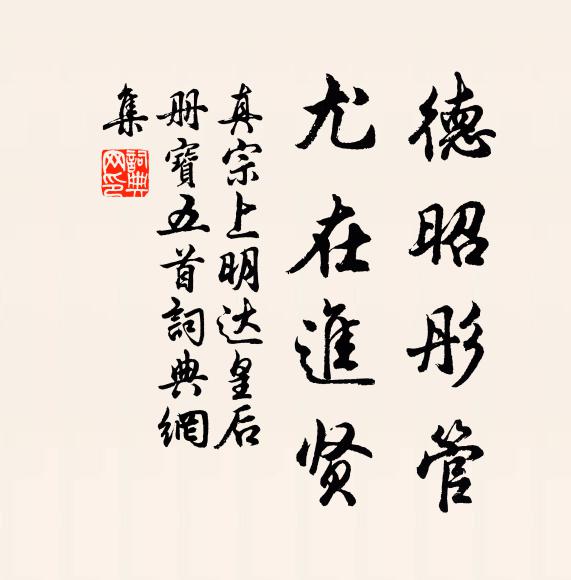 德昭彤管
尤在進贤
真宗上明达皇后
册寶五首詞典網
集
詞典网印